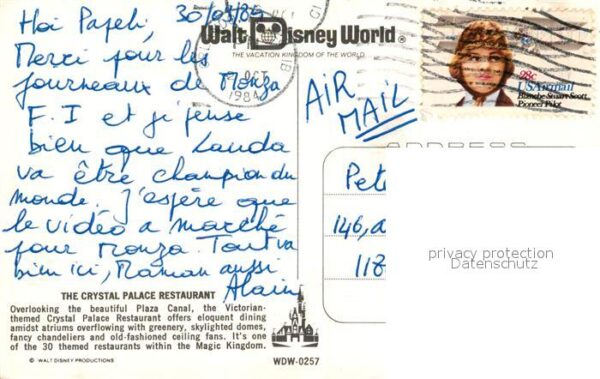 Hoi Papeli, 30/09/84
Merci pour les
journeaux de Monza
F.I et je pense
bien que Lauda
va être champion du
monde. J'espère que
le vidéo a marché
pour Monza. Tout va
bien ici, Maman aussi
Alain
Walt Disney World®
THE VACATION KINGDOM OF THE WORLD
OCT
1984
AIR
MAIL
28c
USAirmail
Blanche Stuart Scott
Pioneer Pilot
ADDRESS
Pete
146, a
118
privacy protection
Datenschutz
THE CRYSTAL PALACE RESTAURANT
Overlooking the beautiful Plaza Canal, the Victorian-
themed Crystal Palace Restaurant offers eloquent dining
amidst atriums overflowing with greenery, skylighted domes,
fancy chandeliers and old-fashioned ceiling fans. It's one
of the 30 themed restaurants within the Magic Kingdom.
© WALT DISNEY PRODUCTIONS
WDW-0257